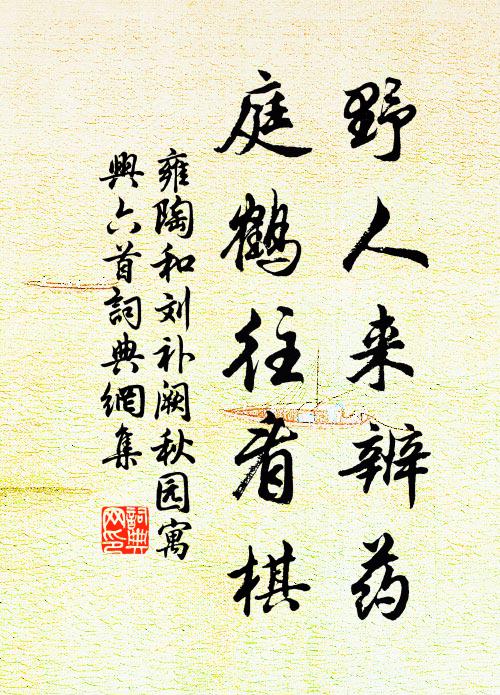 野人来辨药
庭鹤往看棋
雍陶和刘补阙秋园寓
興六首詞典網集
詞典
网印